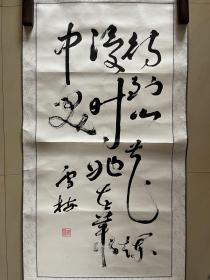 待到山花爛
漫时她在叢
中笑
雪梅